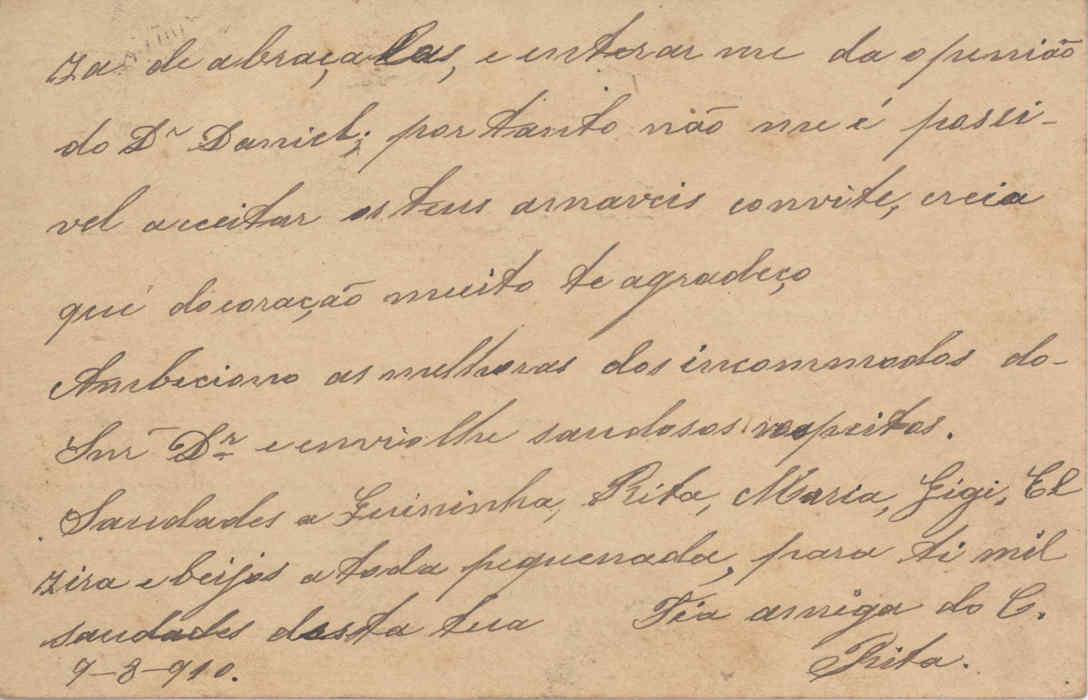 za de abraçalas, e enterar me da openião
do Dr Daniel; por tanto não me é possi-
vel acceitar os teus amaveis convite, creia
que do coração muito te agradeço
Ambeciono as melhoras dos incommodos do-
Snr Dr e enviolhe saudosos respeitos.
Saudades a Luininha, Rita, Maria, Gigi, El
zira e beijos a toda pequenada, para ti mil
saudades desta tua Tia amiga do C.
9-3-910. Rita.